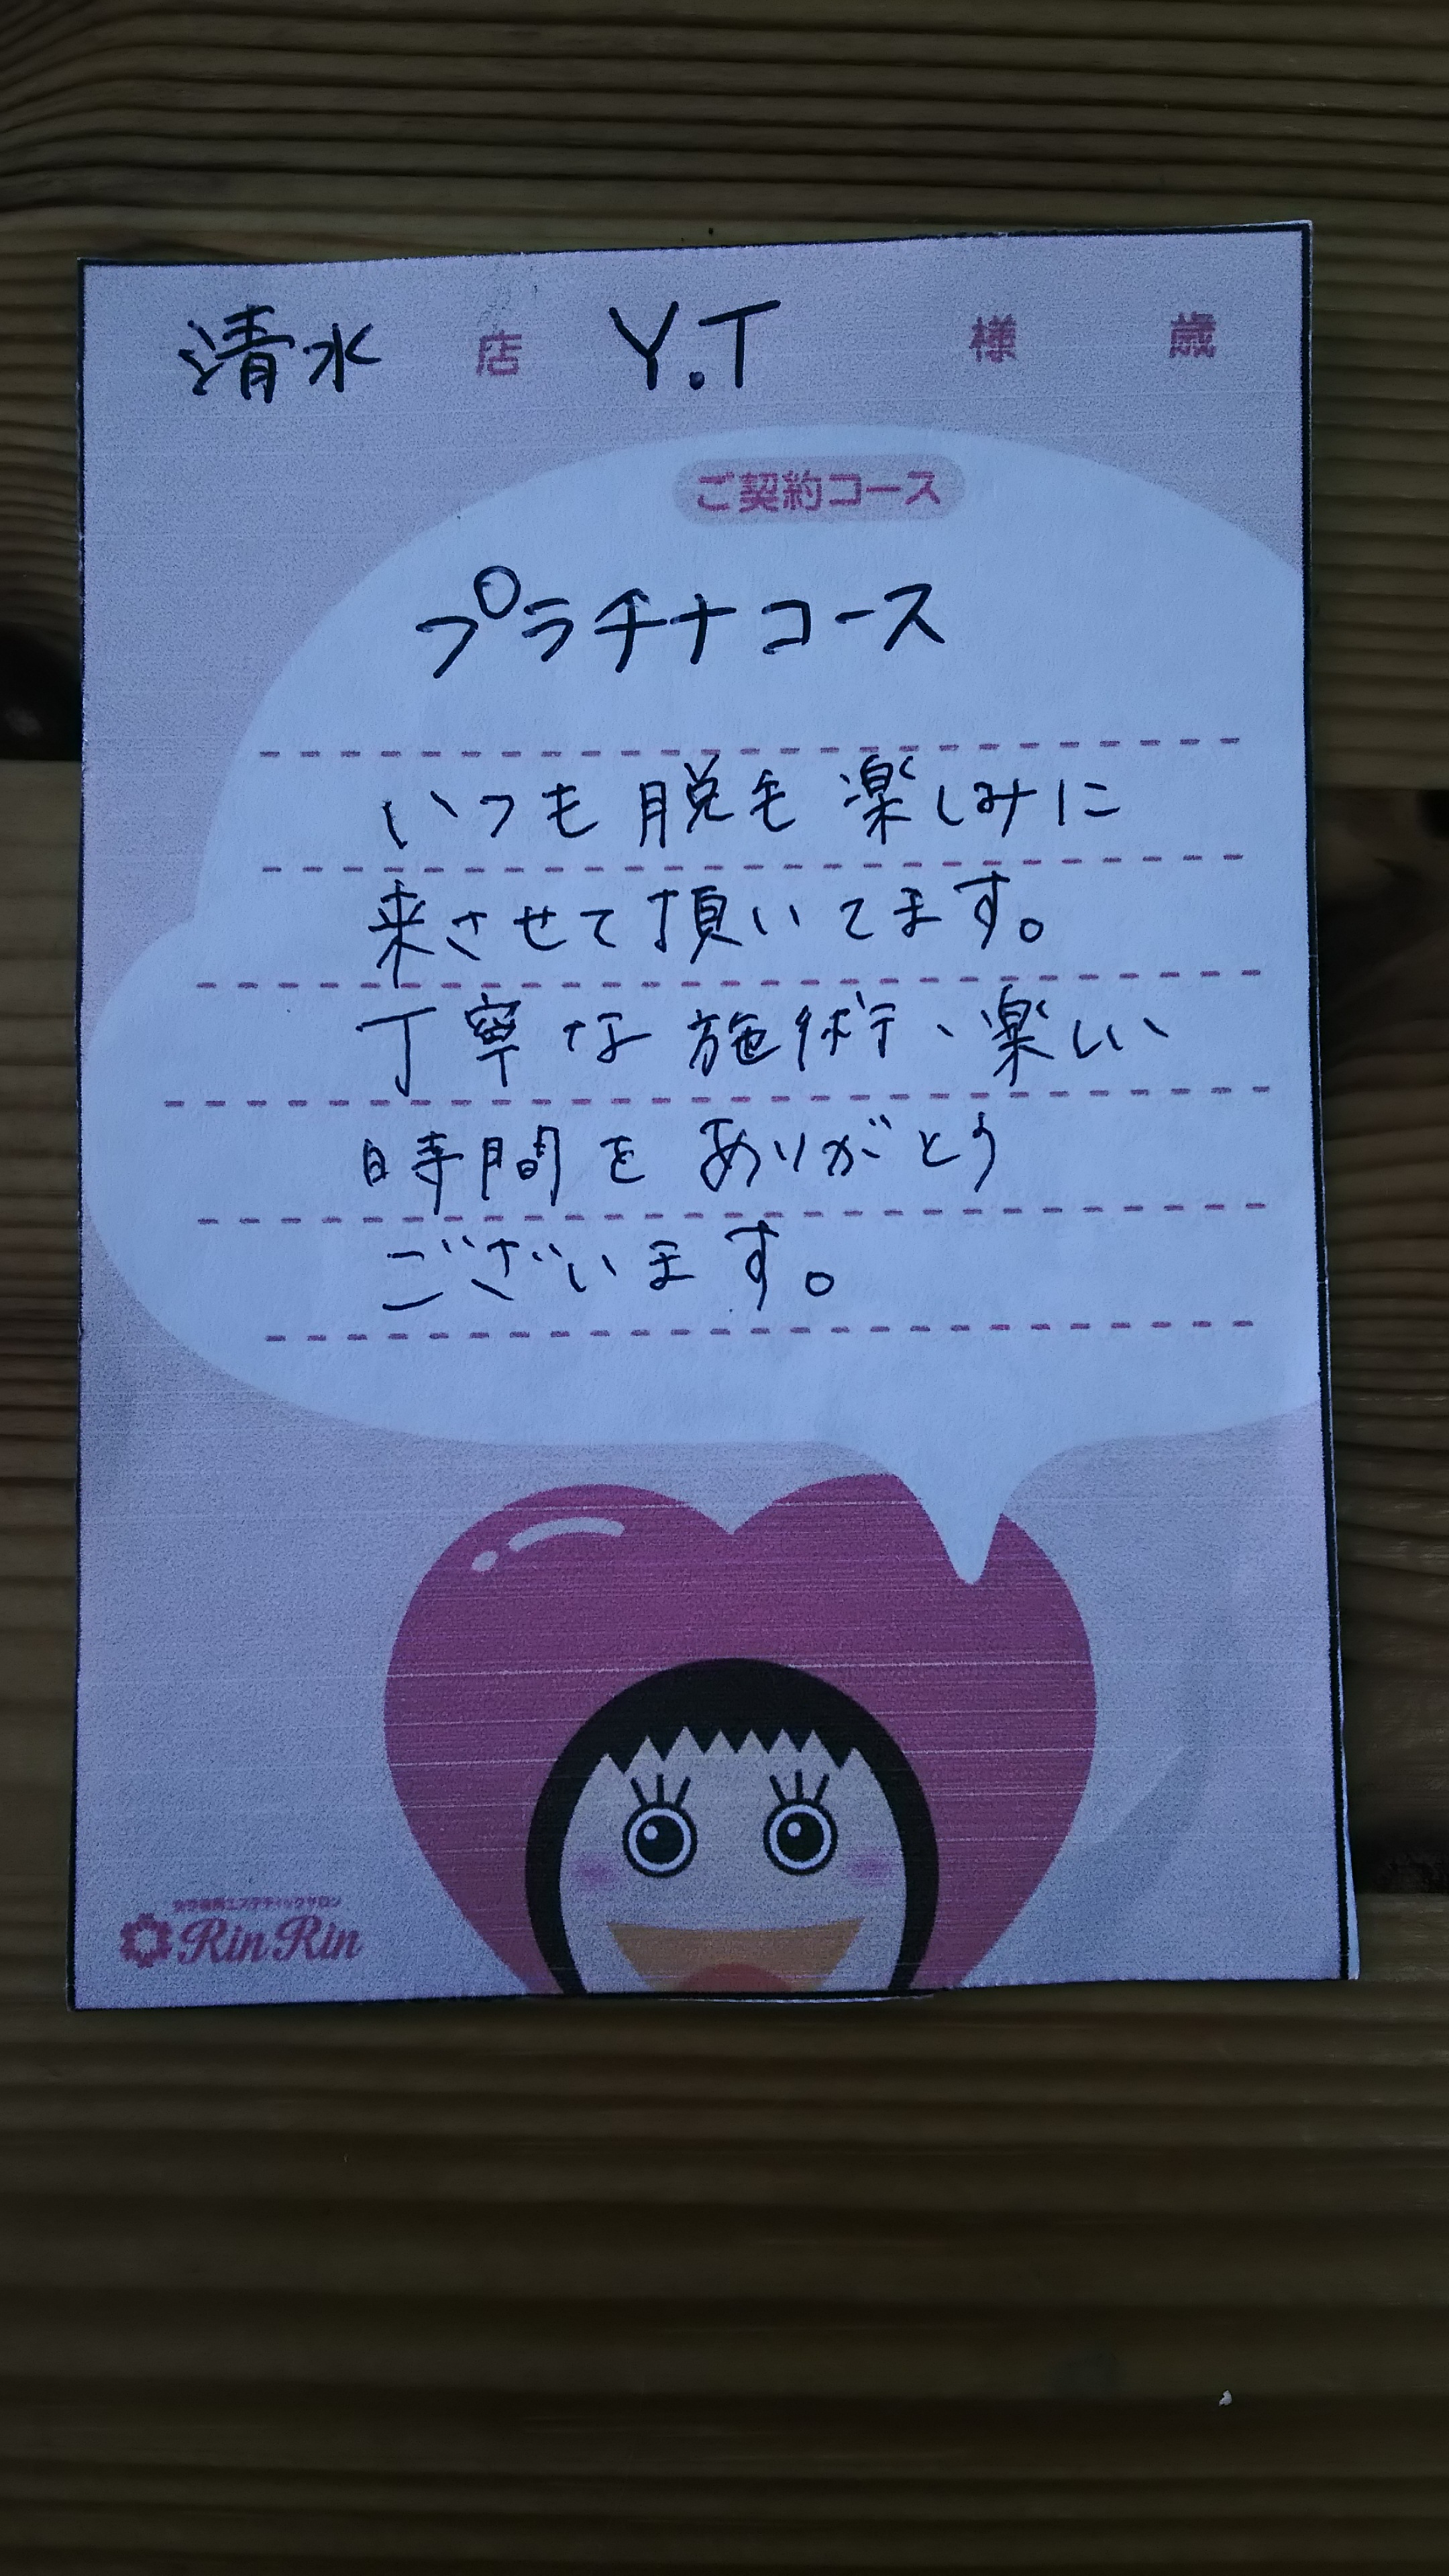 清水 店 Y.T 様 歳
ご契約コース
プラチナコース
いつも脱毛楽しみに
来させて頂いてます。
丁寧な施術、楽しい
時間をありがとう
ございます。
女性専用エステティックサロン
RinRin